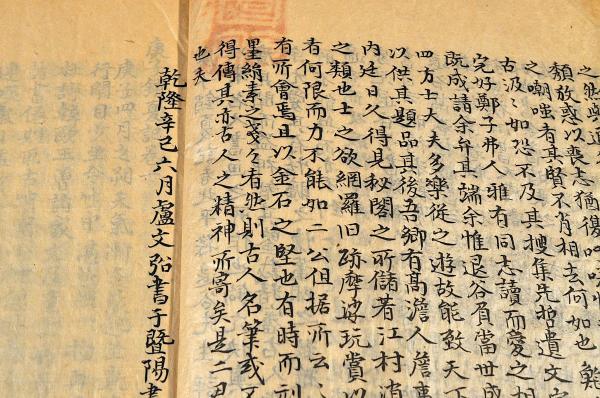 頹放惑以喪志猶復叫呶
之嘲嗤者其賢不肖相去何如也鮑
古汲〻如恐不及其搜集先哲遺文
完好鄭子弗人雅有同志讀而愛之相
既成請余弁其端余惟退谷負當世成
四方士大夫多樂從之遊故能致天下
以供其題品其後吾鄉有高澹人詹事
内廷日久得見秘閣之所儲著江村消
之類也士之欲網羅旧跡摩挲玩賞以
者何限而力不能如二公但据所云〻
有所會焉且以金石之堅也有時而刓
墨絹素之戔〻者然則古人名筆或不
得傳其亦古人之精神所寄矣是二
也夫
乾隆辛巳六月盧文弨書于暨陽書